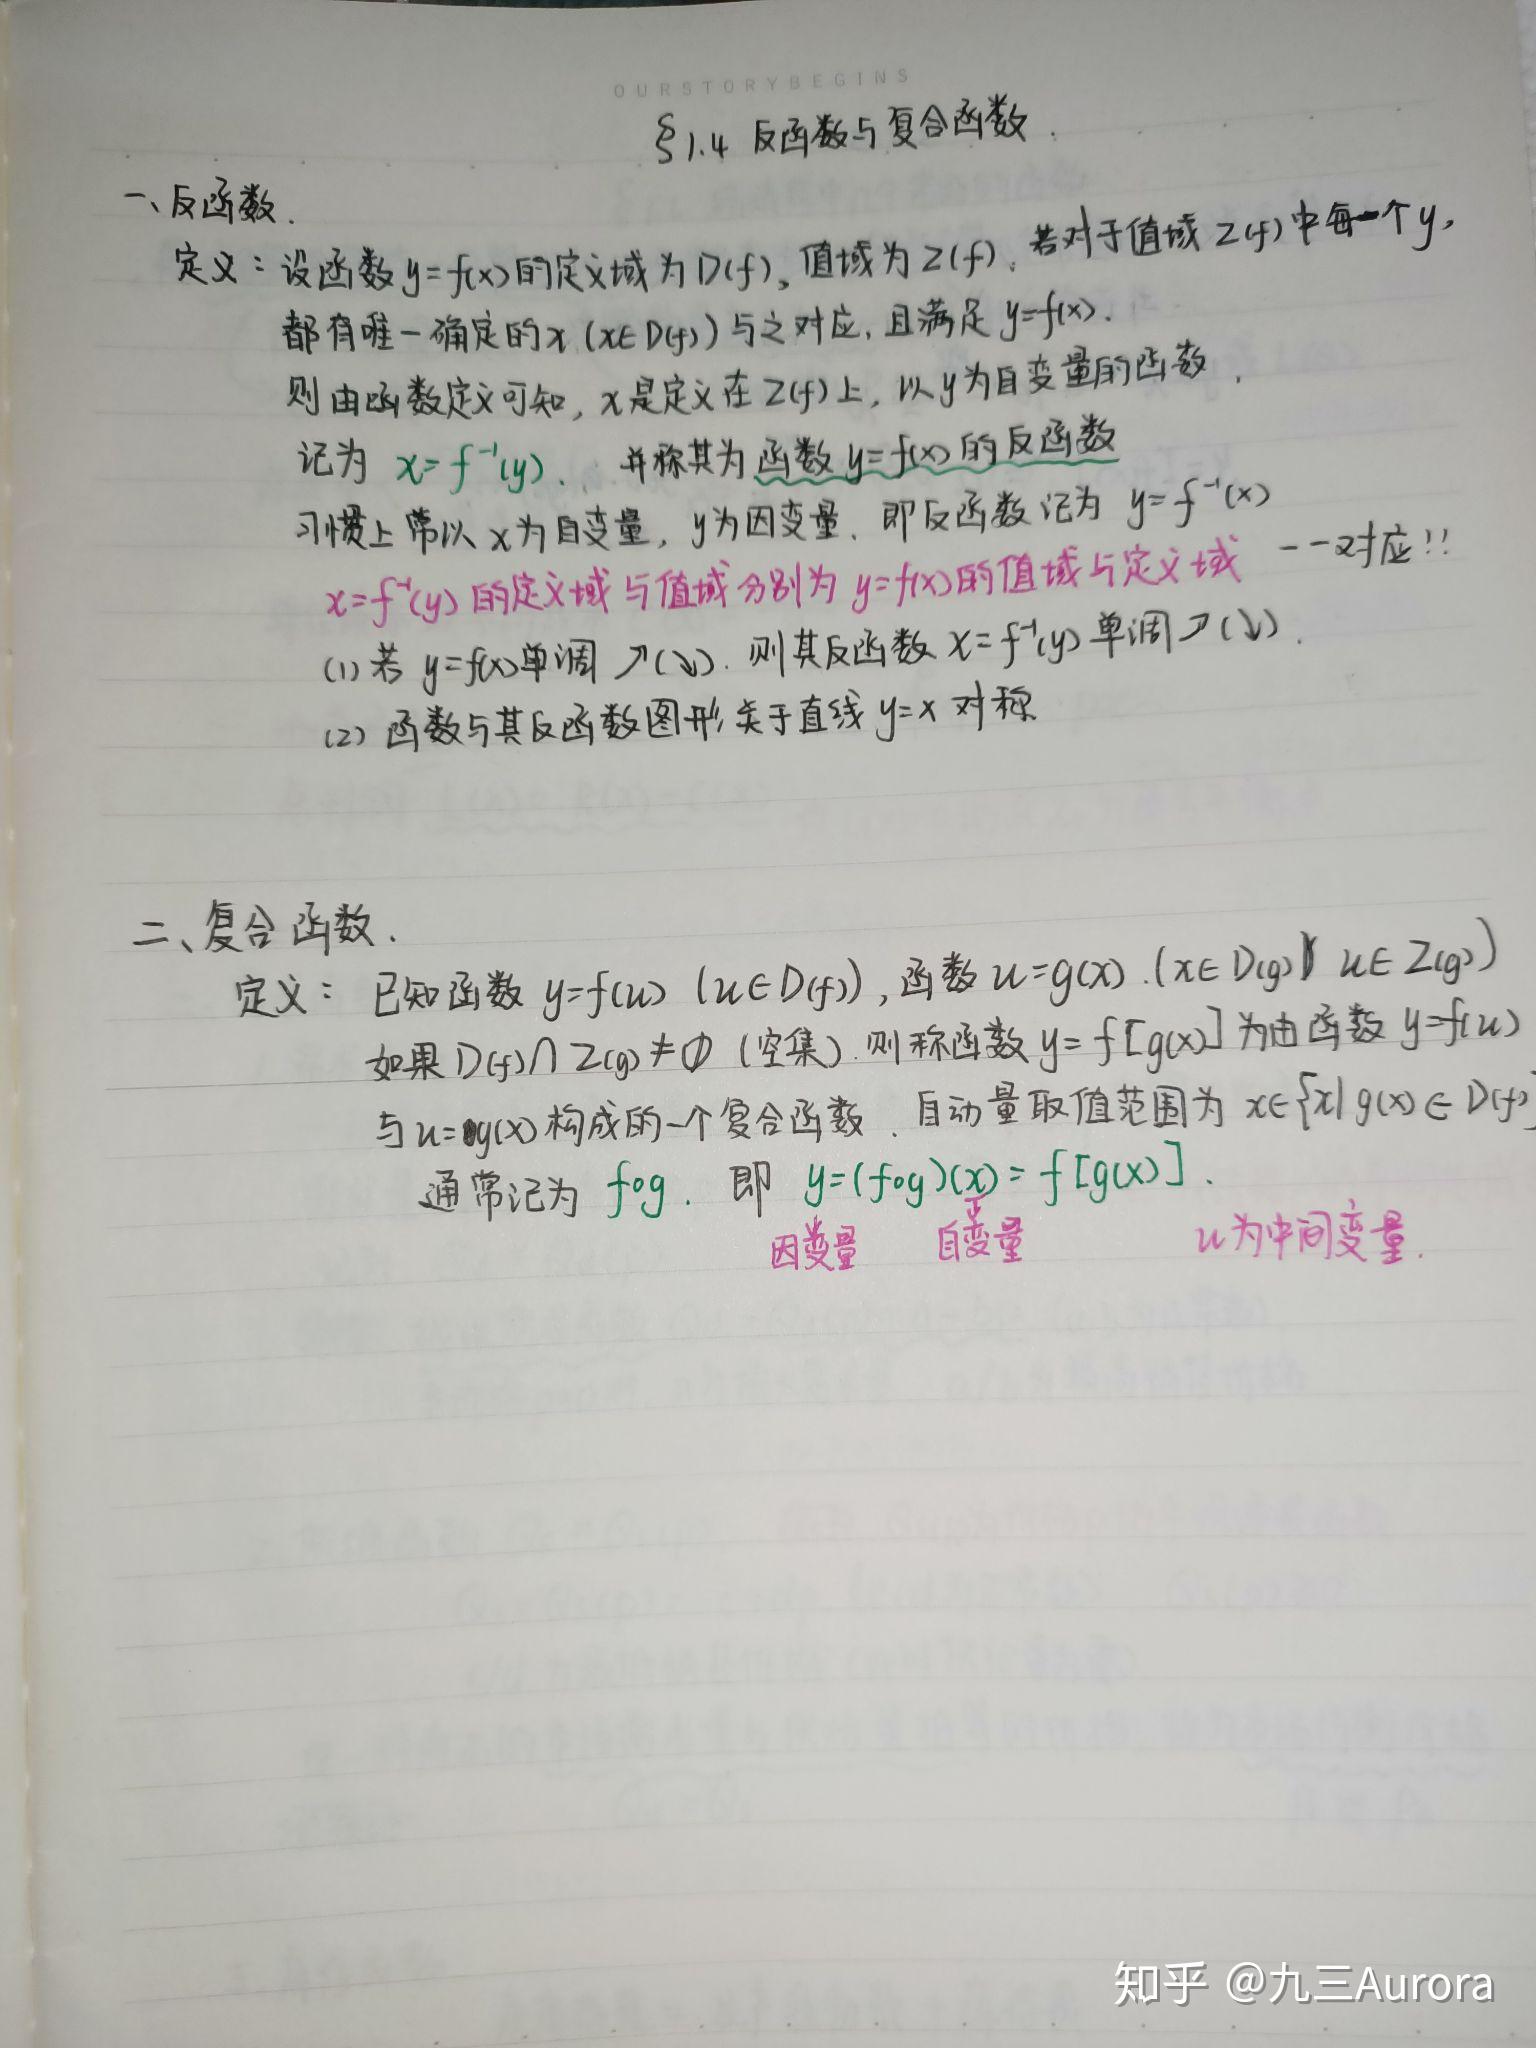 OURSTORYBEGINS
§1.4 反函数与复合函数.
一、反函数.
定义：设函数y=f(x)的定义域为D(f)，值域为Z(f)，若对于值域Z(f)中每一个y，
都有唯一确定的x（x∈D(f)）与之对应，且满足y=f(x).
则由函数定义可知，x是定义在Z(f)上，以y为自变量的函数，
记为 x=f⁻¹(y). 并称其为函数y=f(x)的反函数
习惯上常以x为自变量，y为因变量，即反函数记为 y=f⁻¹(x)
x=f⁻¹(y)的定义域与值域分别为y=f(x)的值域与定义域 一一对应!!
(1) 若 y=f(x)单调↗(↘). 则其反函数 x=f⁻¹(y)单调↗(↘).
(2) 函数与其反函数图形关于直线 y=x 对称
二、复合函数.
定义：已知函数 y=f(u)（u∈D(f)）, 函数 u=g(x).（x∈D(g) u∈Z(g)）
如果D(f)∩Z(g)≠∅（空集）.则称函数y=f[g(x)]为由函数 y=f(u)
与u=g(x)构成的一个复合函数. 自动量取值范围为 x∈{x|g(x)∈D(f)
通常记为 f∘g. 即 y=(f∘g)(x)=f[g(x)].
因变量 自变量 u为中间变量.
知乎 @九三Aurora